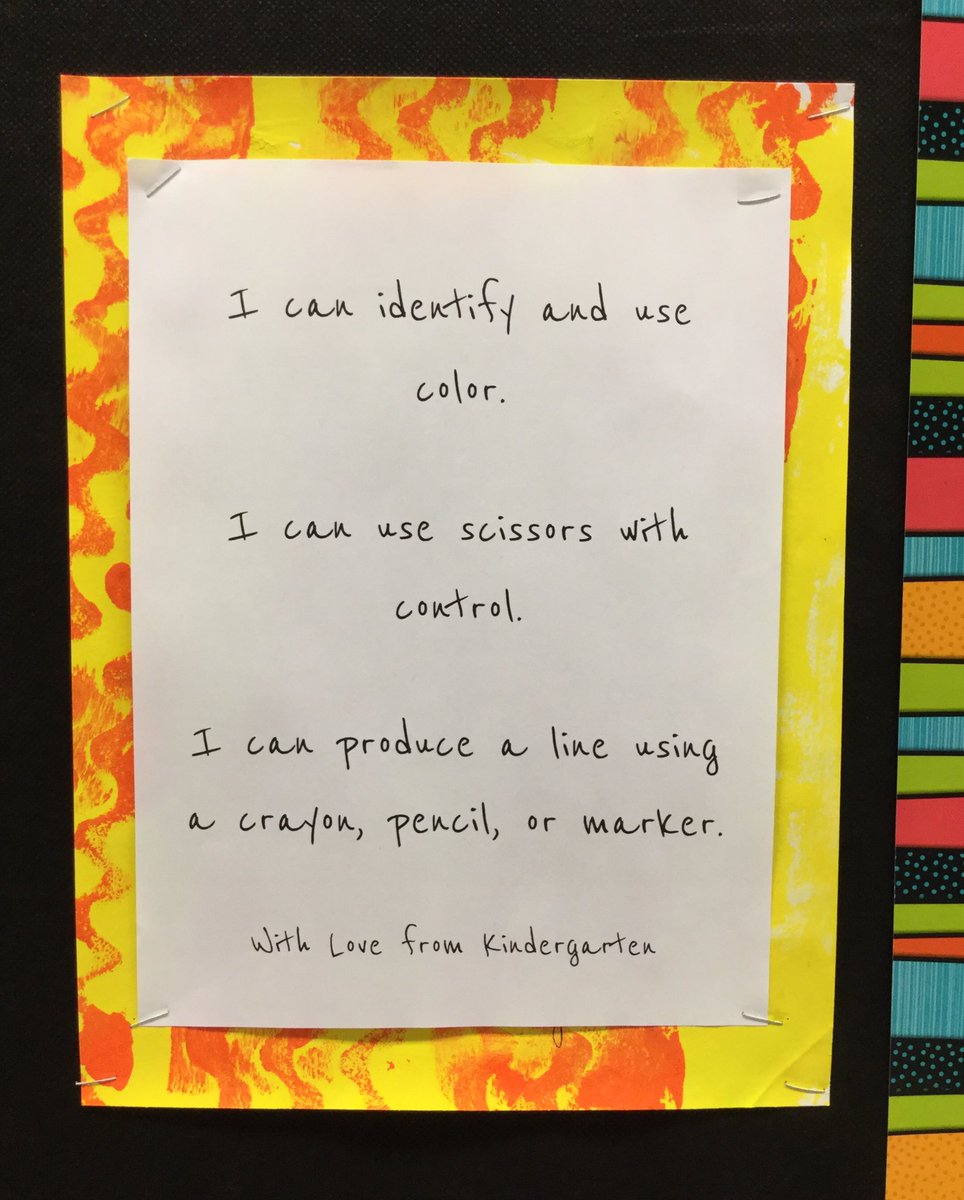 I can identify and use
color.
I can use scissors with
control.
I can produce a line using
a crayon, pencil, or marker.
With Love from Kindergarten